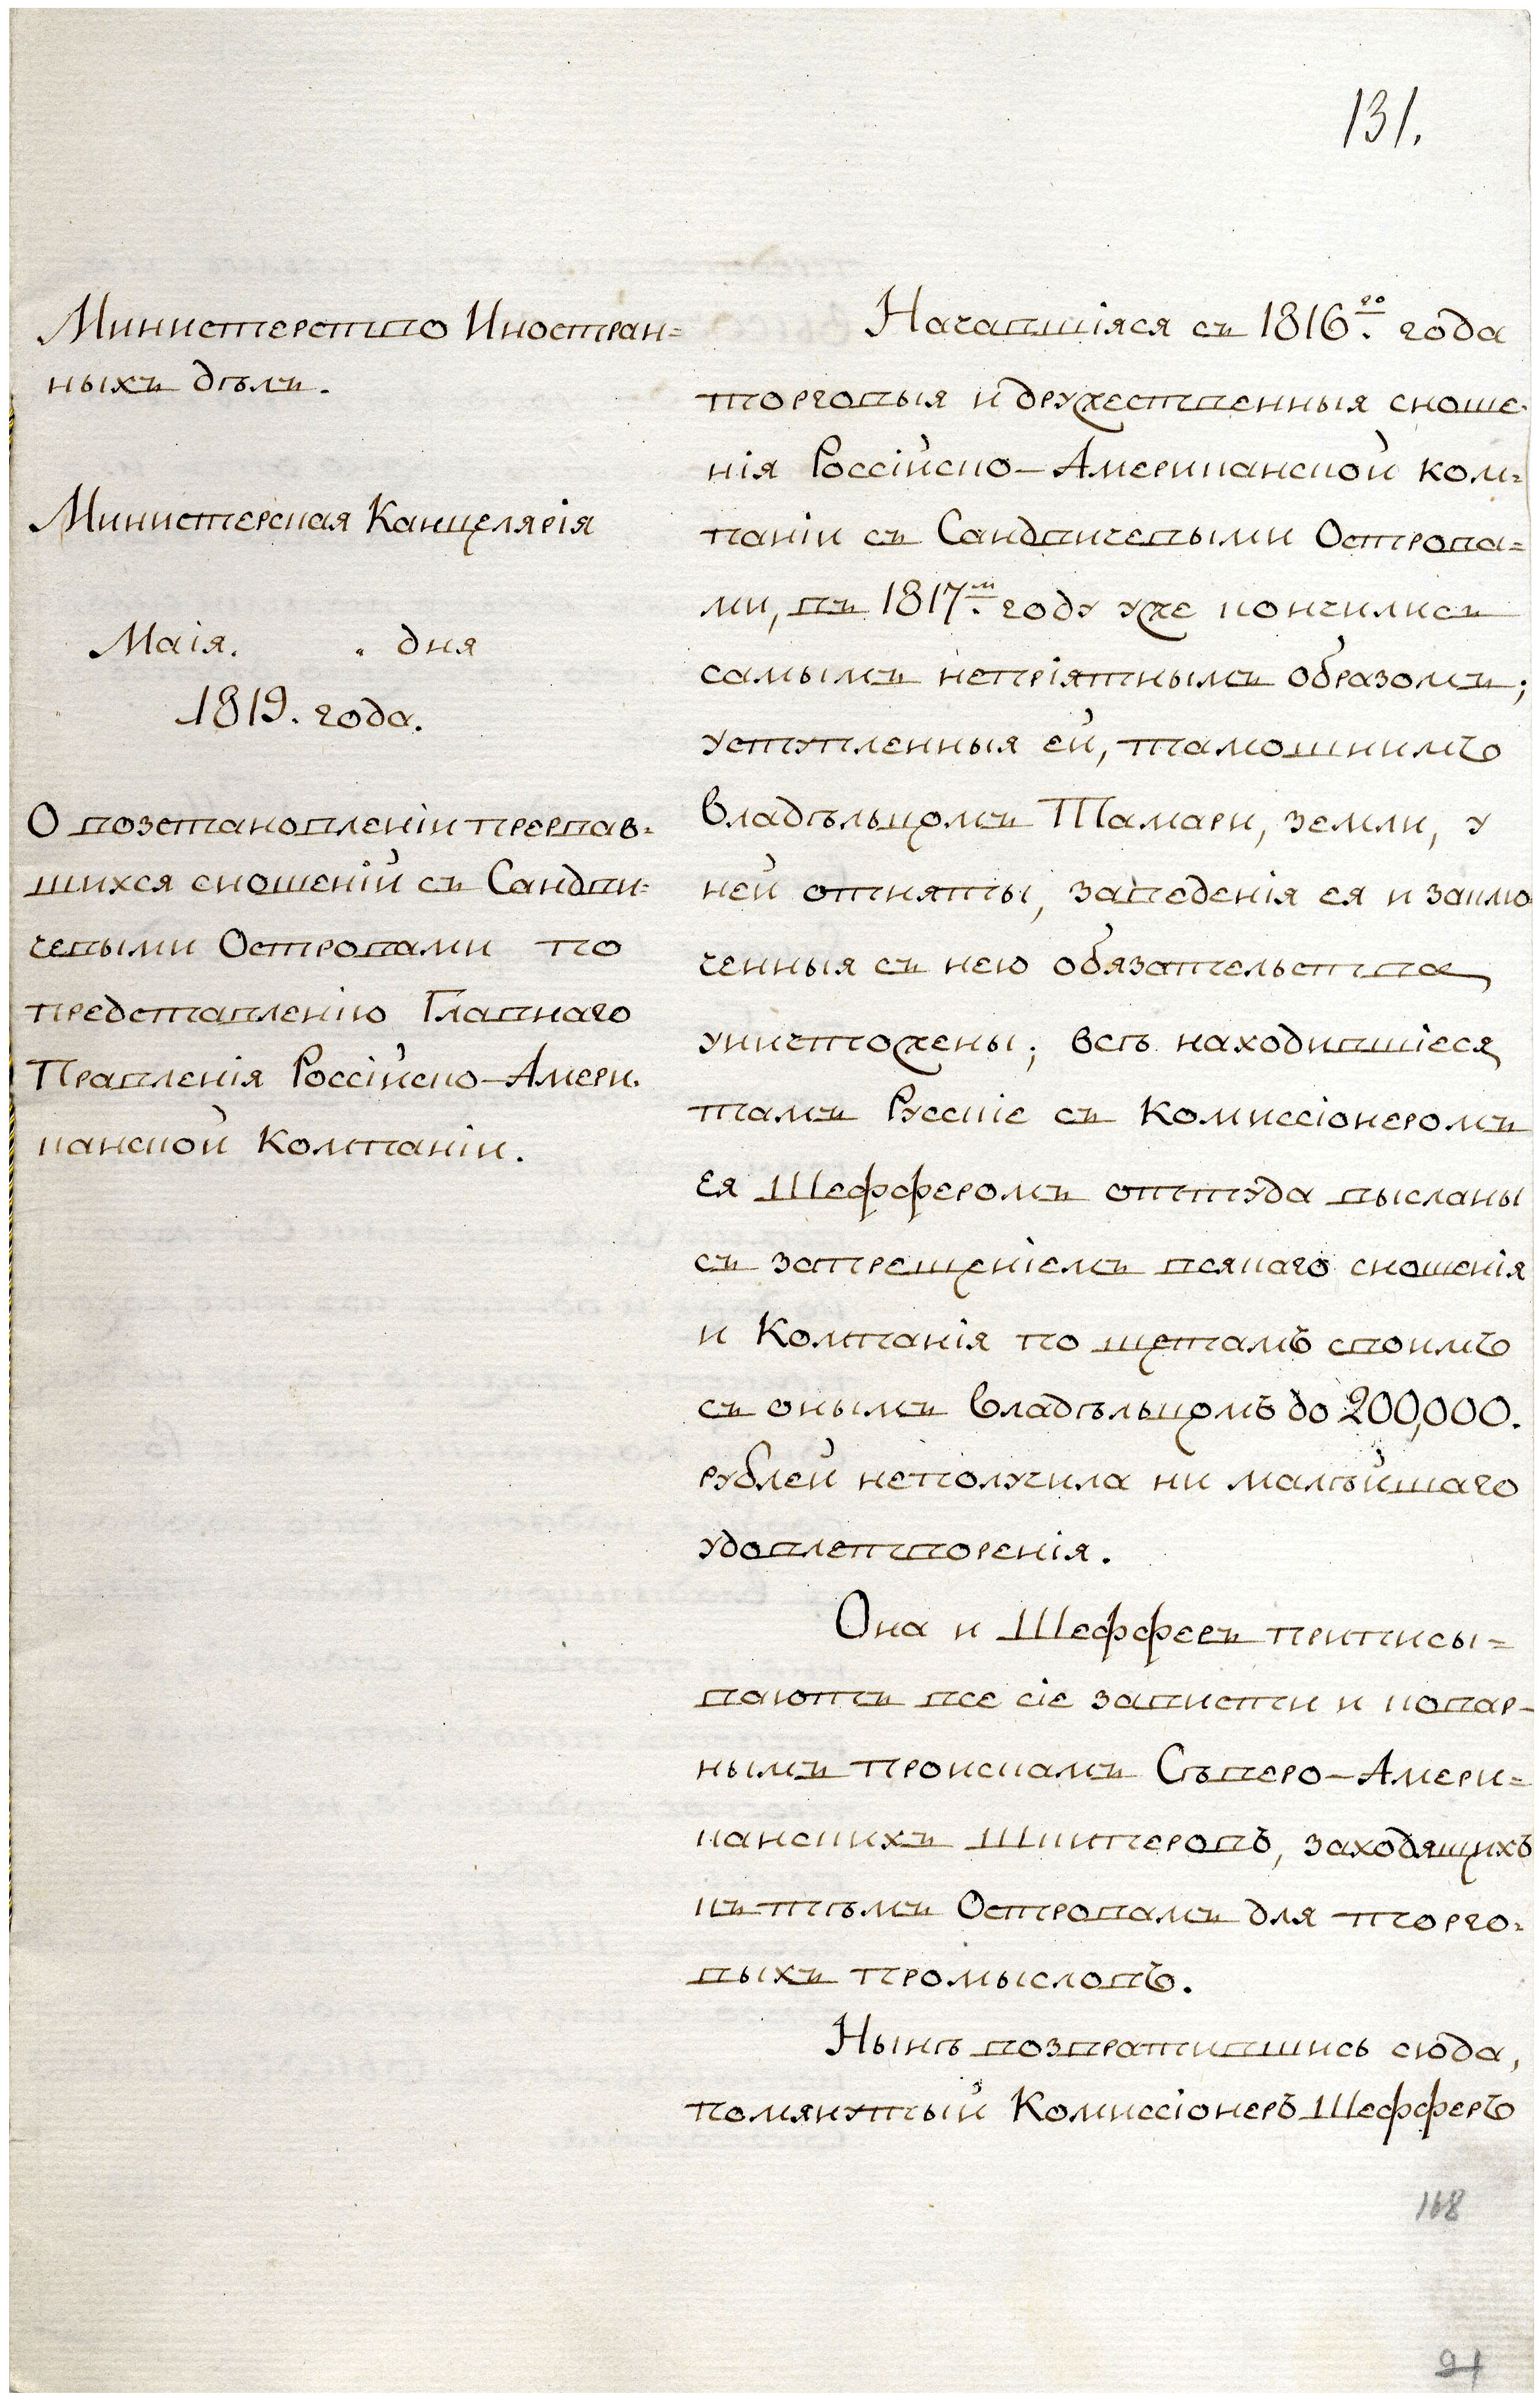 131.
Министерство Иностран=
ныхъ дѣлъ.
Министерская Канцелярія
Маія. „ дня
1819. года.
О возстановленіи прервав=
шихся сношеній съ Сандви=
чевыми Островами по
представленію Главнаго
Правленія Россійско-Амери=
канской Компаніи.
Начавшіяся съ 1816го. года
торговыя и дружественныя сноше=
нія Россійско-Американской ком=
паніи съ Сандвичевыми Острова=
ми, въ 1817м. году уже кончились
самымъ непріятнымъ образомъ;
уступленныя ей, тамошнимъ
владѣльцомъ Тамари, земли, у
ней отняты, заведенія ея и заклю
ченныя съ нею обязательства
уничтожены; всѣ находившіеся
тамъ Русскіе съ Комиссіонеромъ
ея Шефферомъ оттуда высланы
съ запрещеніемъ всякаго сношенія
и Компанія по щетамъ своимъ
съ онымъ владѣльцомъ до 200,000.
рублей неполучила ни малѣйшаго
удовлетворенія.
Она и Шефферъ приписы=
ваютъ все сіе зависти и ковар-
нымъ проискамъ Сѣверо-Амери=
канскихъ Шкиперовъ, заходящихъ
къ тѣмъ Островамъ для торго=
выхъ промысловъ.
Нынѣ возвратившись сюда,
помянутый Комиссіонеръ Шефферъ
168
21